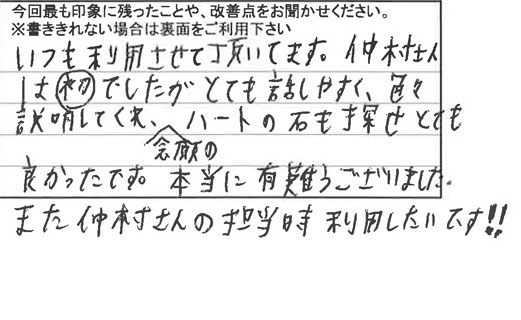 今回最も印象に残ったことや、改善点をお聞かせください。
※書ききれない場合は裏面をご利用下さい
いつも利用させて頂いてます。仲村さん
は初でしたがとても話しやすく、色々
説明してくれ、念願のハートの石も探せとても
良かったです。本当に有難うございました。
また仲村さんの担当時利用したいです!!